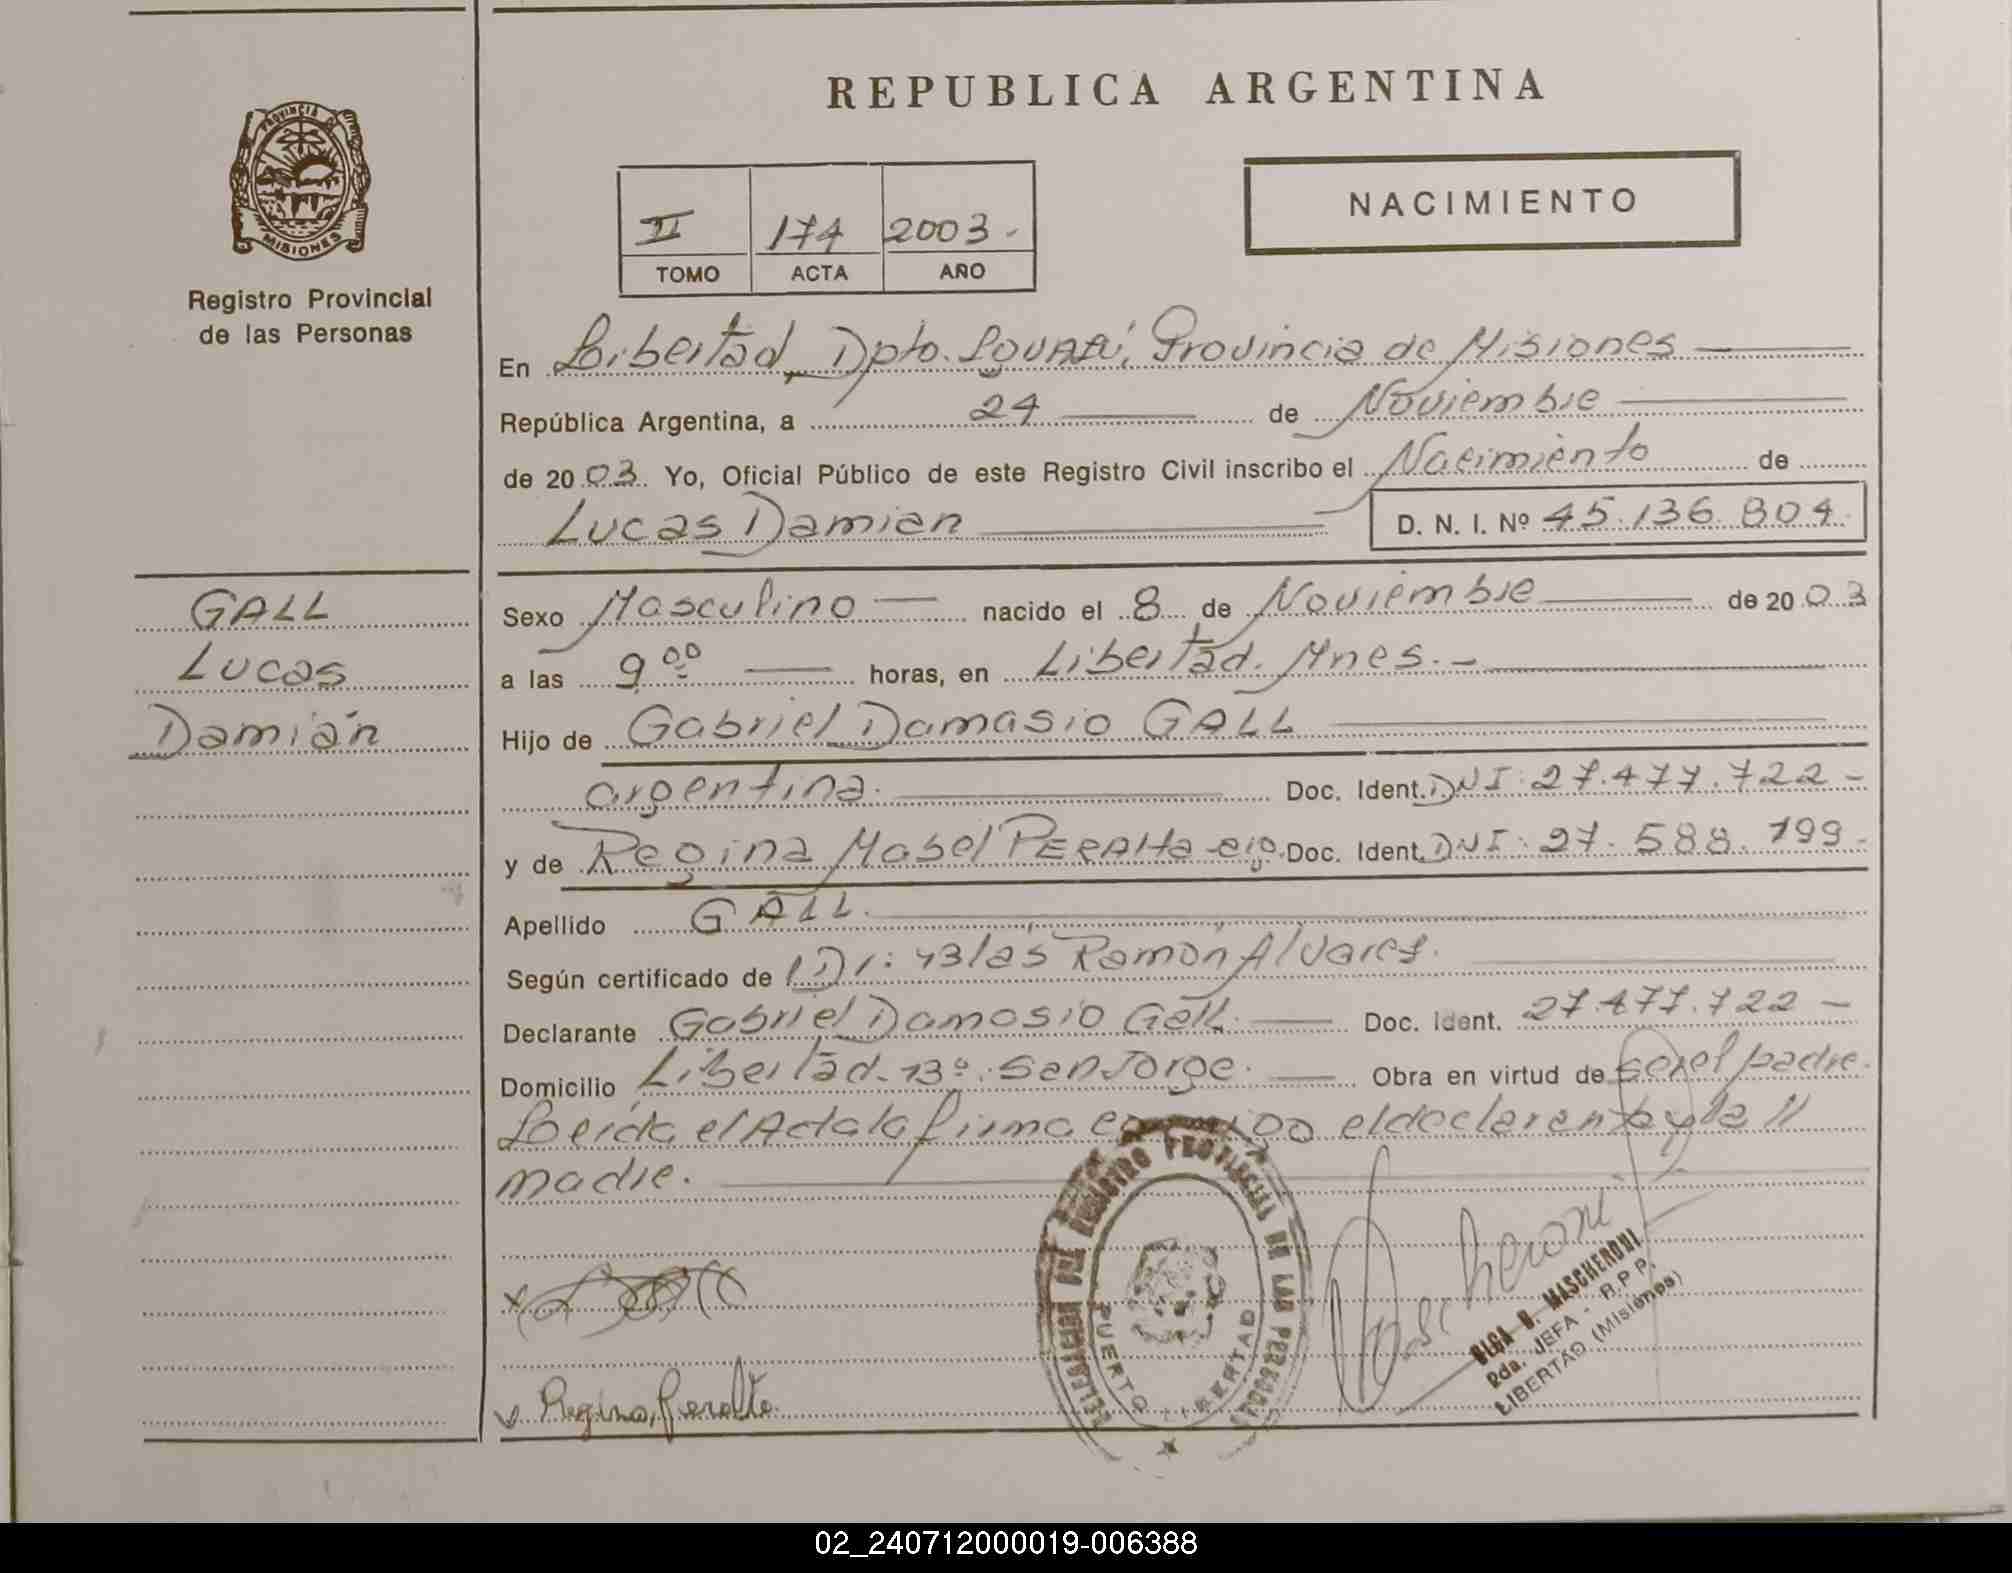 REPUBLICA ARGENTINA
PROVINCIA DE
MISIONES
Registro Provincial
de las Personas
NACIMIENTO
II 174 2003.-
TOMO ACTA AÑO
En Libertad, Dpto. Iguazú, Provincia de Misiones
República Argentina, a 24 de Noviembre
de 2003. Yo, Oficial Público de este Registro Civil inscribo el Nacimiento de
Lucas Damian D. N. I. Nº 45.136.804.
GALL
Lucas
Damián
Sexo Masculino nacido el 8 de Noviembre de 2003
a las 9 00 horas, en Libertad. Mnes.-
Hijo de Gabriel Damasio GALL
argentina. Doc. Ident. DNI: 27.477.722-
y de Regina Mabel PERALTA Doc. Ident. DNI: 27.588.799-
Apellido GALL.
Según certificado de Dr: Blas Ramón Alvares.
Declarante Gabriel Damasio Gall. Doc. Ident. 27.477.722-
Domicilio Libertad. Bº. San Jorge. Obra en virtud de ser el padre.
Leida el Acta la firma el declarante y la
madre.
DELEGACION DEL REGISTRO PROVINCIAL DE LAS PERSONAS
PUERTO LIBERTAD
Mascheroni
OLGA B. MASCHERONI
Rda. JEFA - R.P.P.
LIBERTAD (Misiones)
Regina Peralta
02_240712000019-006388